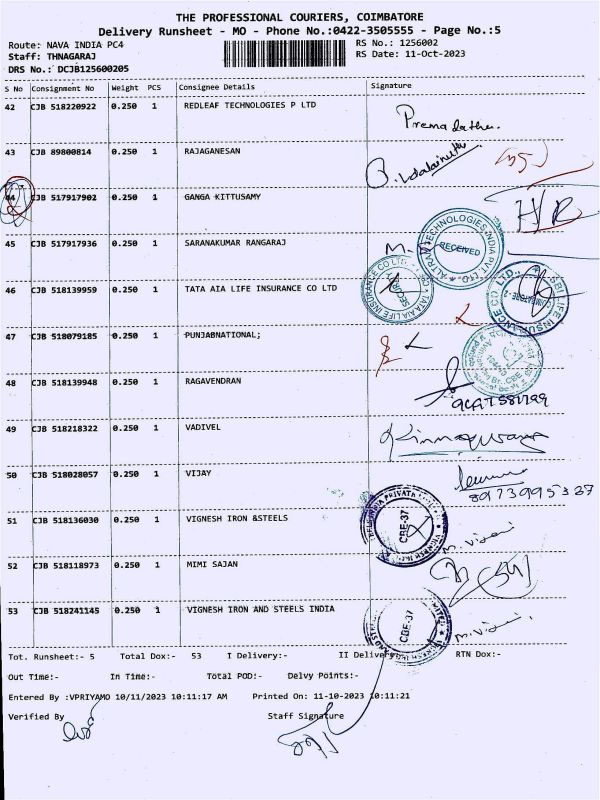 THE PROFESSIONAL COURIERS, COIMBATORE
Delivery Runsheet - MO - Phone No.:0422-3505555 - Page No.:5
Route: NAVA INDIA PC4 RS No.: 1256002
Staff: THNAGARAJ RS Date: 11-Oct-2023
DRS No.: DCJB125600205
S No Consignment No Weight PCS Consignee Details Signature
42 CJB 518220922 0.250 1 REDLEAF TECHNOLOGIES P LTD
Prema latha
43 CJB 89800814 0.250 1 RAJAGANESAN
44 CJB 517917902 0.250 1 GANGA KITTUSAMY
H/R
45 CJB 517917936 0.250 1 SARANAKUMAR RANGARAJ
RECEIVED
46 CJB 518139959 0.250 1 TATA AIA LIFE INSURANCE CO LTD
TATA AIA LIFE INSURANCE CO LTD
SBI LIFE INSURANCE CO LTD.
47 CJB 518079185 0.250 1 PUNJABNATIONAL;
48 CJB 518139948 0.250 1 RAGAVENDRAN
49 CJB 518218322 0.250 1 VADIVEL
50 CJB 518028057 0.250 1 VIJAY
51 CJB 518136030 0.250 1 VIGNESH IRON &STEELS
CBE-37
52 CJB 518118973 0.250 1 MIMI SAJAN
53 CJB 518241145 0.250 1 VIGNESH IRON AND STEELS INDIA
CBE-37
Tot. Runsheet:- 5 Total Dox:- 53 I Delivery:- II Delivery:- RTN Dox:-
Out Time:- In Time:- Total POD:- Delvy Points:-
Entered By :VPRIYAMO 10/11/2023 10:11:17 AM Printed On: 11-10-2023 10:11:21
Verified By Staff Signature